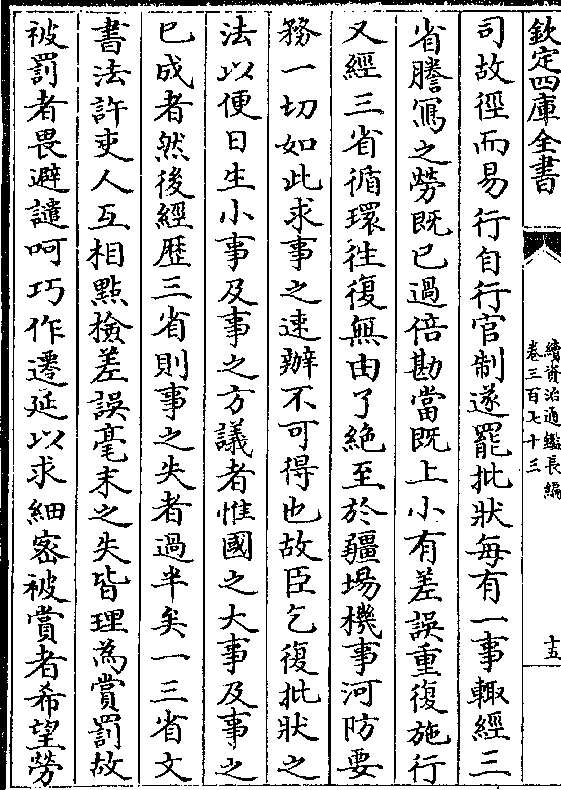 欽定四庫全書
續資治通鑑長編
卷三百七十三
十五
司故徑而易行自行官制遂罷批狀每有一事輙經三
省謄寫之勞既已過倍勘當既上小有差誤重復施行
又經三省循環往復無由了絶至於疆場機事河防要
務一切如此求事之速辦不可得也故臣乞復批狀之
法以便日生小事及事之方議者惟國之大事及事之
已成者然後經歴三省則事之失者過半矣一三省文
書法許吏人互相點檢差誤毫末之失皆理為賞罰故
被罰者畏避譴呵巧作遷延以求細宻被賞者希望勞